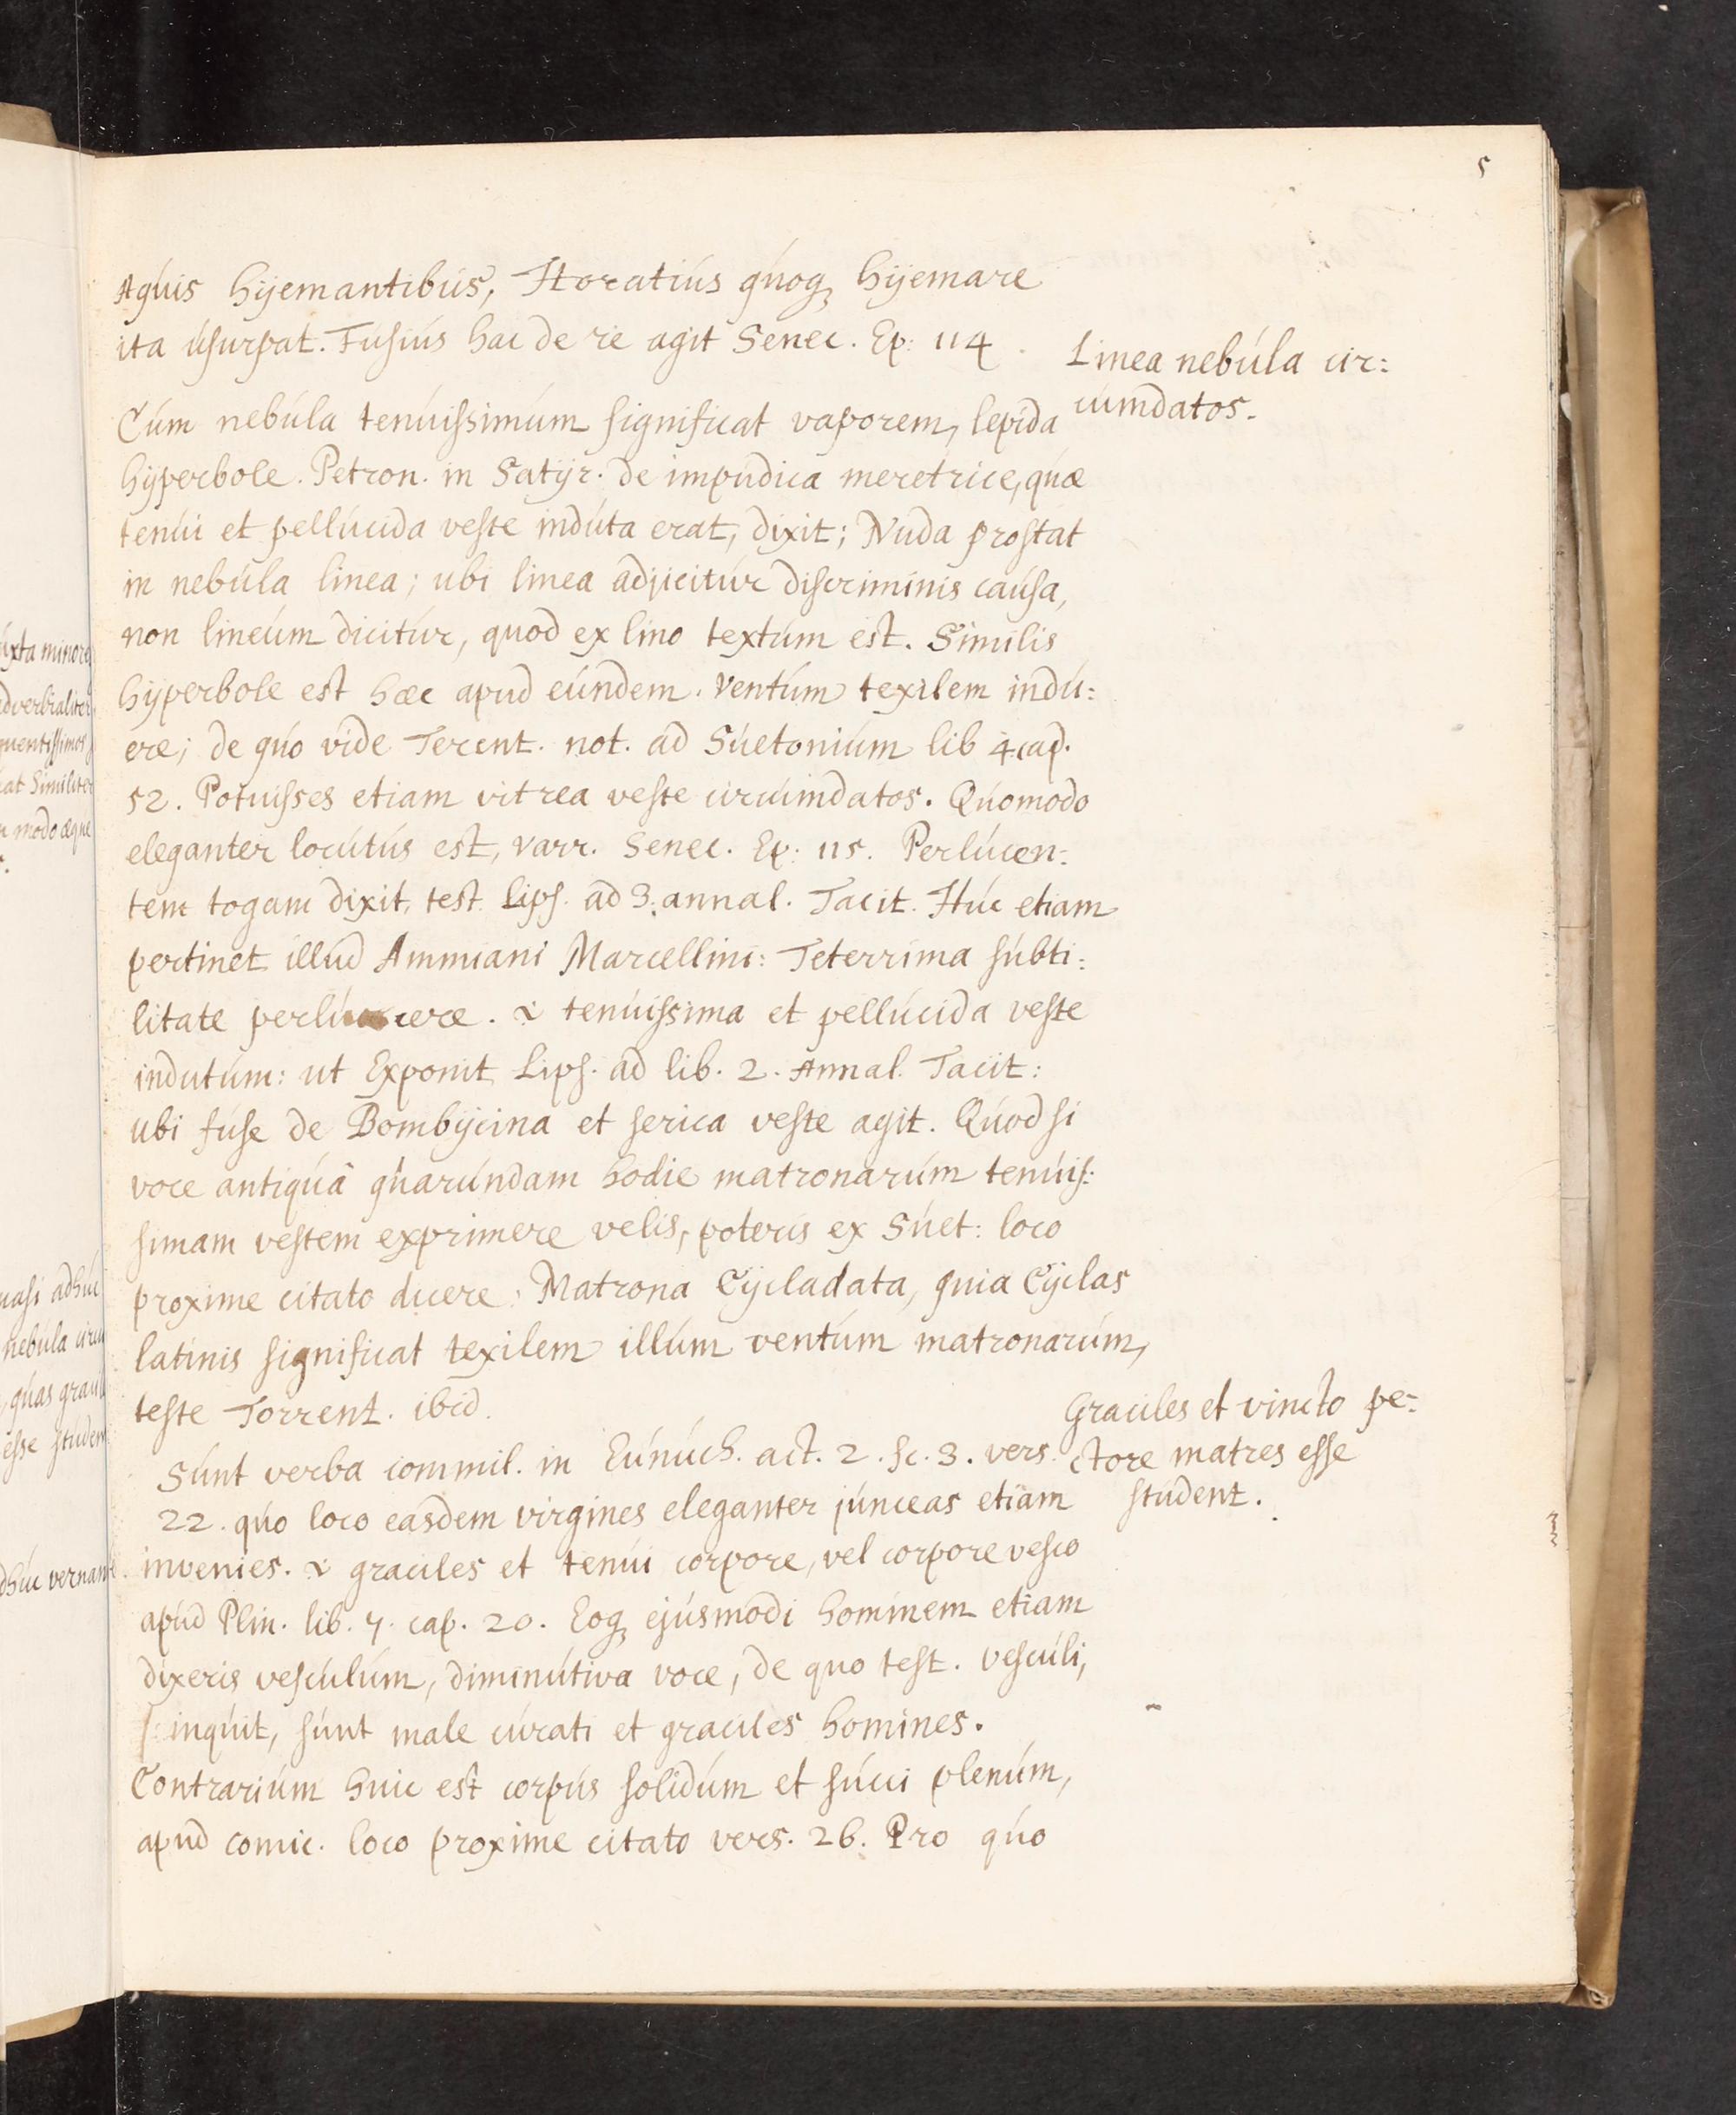 5
Aquis hijemantibus, Horatius quoq, hijemare
ita usurpat. Fusius hac de re agit Senec. Ep: 114.
Linea nebula cir=
cumdatos.
Cum nebula tenuissimum significat vaporem, lepida
hijperbole. Petron. in Satijr. de impudica meretrice, quæ
tenui et pellucida veste induta erat, dixit; Nuda prostat
in nebula linea; ubi linea adjicitur discriminis causa,
non lineum dicitur, quod ex lino textum est. Similis
hijperbole est hæc apud eundem. Ventum texilem indu=
ere; de quo vide Terent. not. ad Suetonium lib 4. cap.
52. Potuisses etiam vitrea veste circumdatos. Quomodo
eleganter locutus est, varr. Senec. Ep: 115. Perlucen=
tem togam dixit, test. Lips. ad 3. annal. Tacit. Huc etiam
pertinet illud Ammiani Marcellini: Teterrima subti=
litate perlucere. tenuissima et pellucida veste
indutum: ut Exponit Lips. ad lib. 2. Annal. Tacit:
ubi fuse de Bombijcina et serica veste agit. Quod si
voce antiquâ quarundam hodie matronarum tenuis=
simam vestem exprimere velis, poteris ex Suet: loco
proxime citato dicere: Matrona Cijcladata, quia Cijclas
latinis significat texilem illum ventum matronarum,
teste Torrent. ibid.
Graciles et vincto pe=
ctore matres esse
student.
Sunt verba commil. in Eunuch. act. 2. sc. 3. vers.
22. quo loco easdem virgines eleganter junceas etiam
invenies. graciles et tenui corpore, vel corpore vesco
apud Plin. lib. 7. cap. 20. Eoq, ejusmodi hominem etiam
dixeris vesculum, diminutiva voce, de quo test. vesculi,
inquit, sunt male curati et graciles homines.
Contrarium huic est corpus solidum et succi plenum,
apud comic. loco proxime citato vers. 26. Pro quo